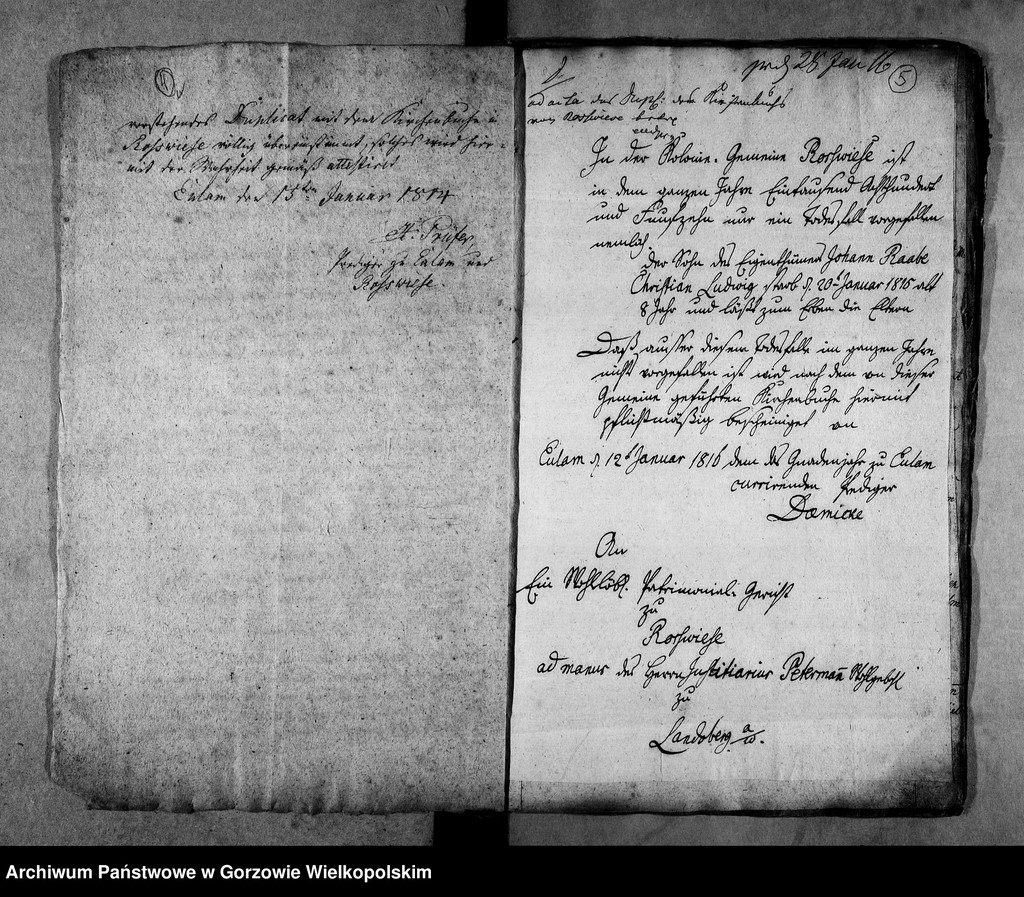 vorstehendes Duplicat mit dem Kirchenbuche in
Rosswiese völlig übereinstimmt, solches wird hier-
mit der Wahrheit gemäß attestiret
Eulam den 15ten Januar 1814
Prediger zu Eulam und
Rosswiese.
28 Jan 16
5
ad acta des Dupl: des Kirchenbuchs
von Rosswiese
In der Kolonie-Gemeine Rosswiese ist
in dem ganzen Jahre Eintausend Achthundert
und Funfzehn nur ein Todesfall vorgefallen
nemlich
der Sohn des Eigenthümers Johann Raabe
Christian Ludwig starb d. 20t Januar 1815 alt
8 Jahr und läßt zum Erben die Eltern
Daß ausser diesem Todesfalle im ganzen Jahre
nichts vorgefallen ist wird nach dem von dieser
Gemeine geführten Kirchenbuche hiermit
pflichtmäßig bescheiniget von
Eulam d. 12t Januar 1816 dem das Gnadenjahr zu Eulam
currirenden Prediger
Daemicke
An
Ein Wohllöbl. Patrimonial-Gericht
zu
Rosswiese
ad manus des Herrn Justitiarius Petermañ Wohlgebl
zu
Landsberg a/w.
Archiwum Państwowe w Gorzowie Wielkopolskim